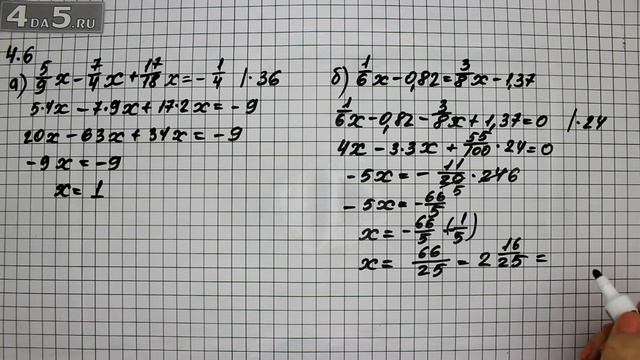 4DA5.RU
4.6
а) 5/9 x - 7/4 x + 17/18 x = - 1/4 | · 36
5·4x - 7·9x + 17·2x = - 9
20x - 63x + 34x = - 9
- 9x = - 9
x = 1
б) 1/6 x - 0,82 = 3/8 x - 1,37
1/6 x - 0,82 - 3/8 x + 1,37 = 0 | · 24
4x - 3·3x + 55/100 · 24 = 0
- 5x = - 11/20 5 · 24 6
- 5x = - 66/5
x = - 66/5 · (- 1/5)
x = 66/25 = 2 16/25 =